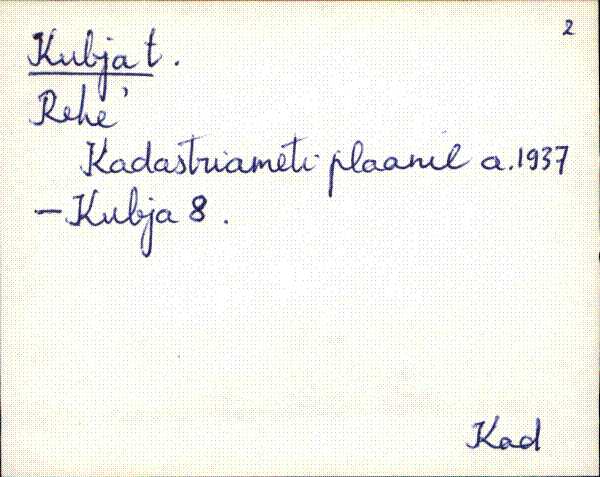 2
Kubja t.
Rehe'
Kadastriameti plaanil a. 1937
— Kubja 8.
Kad